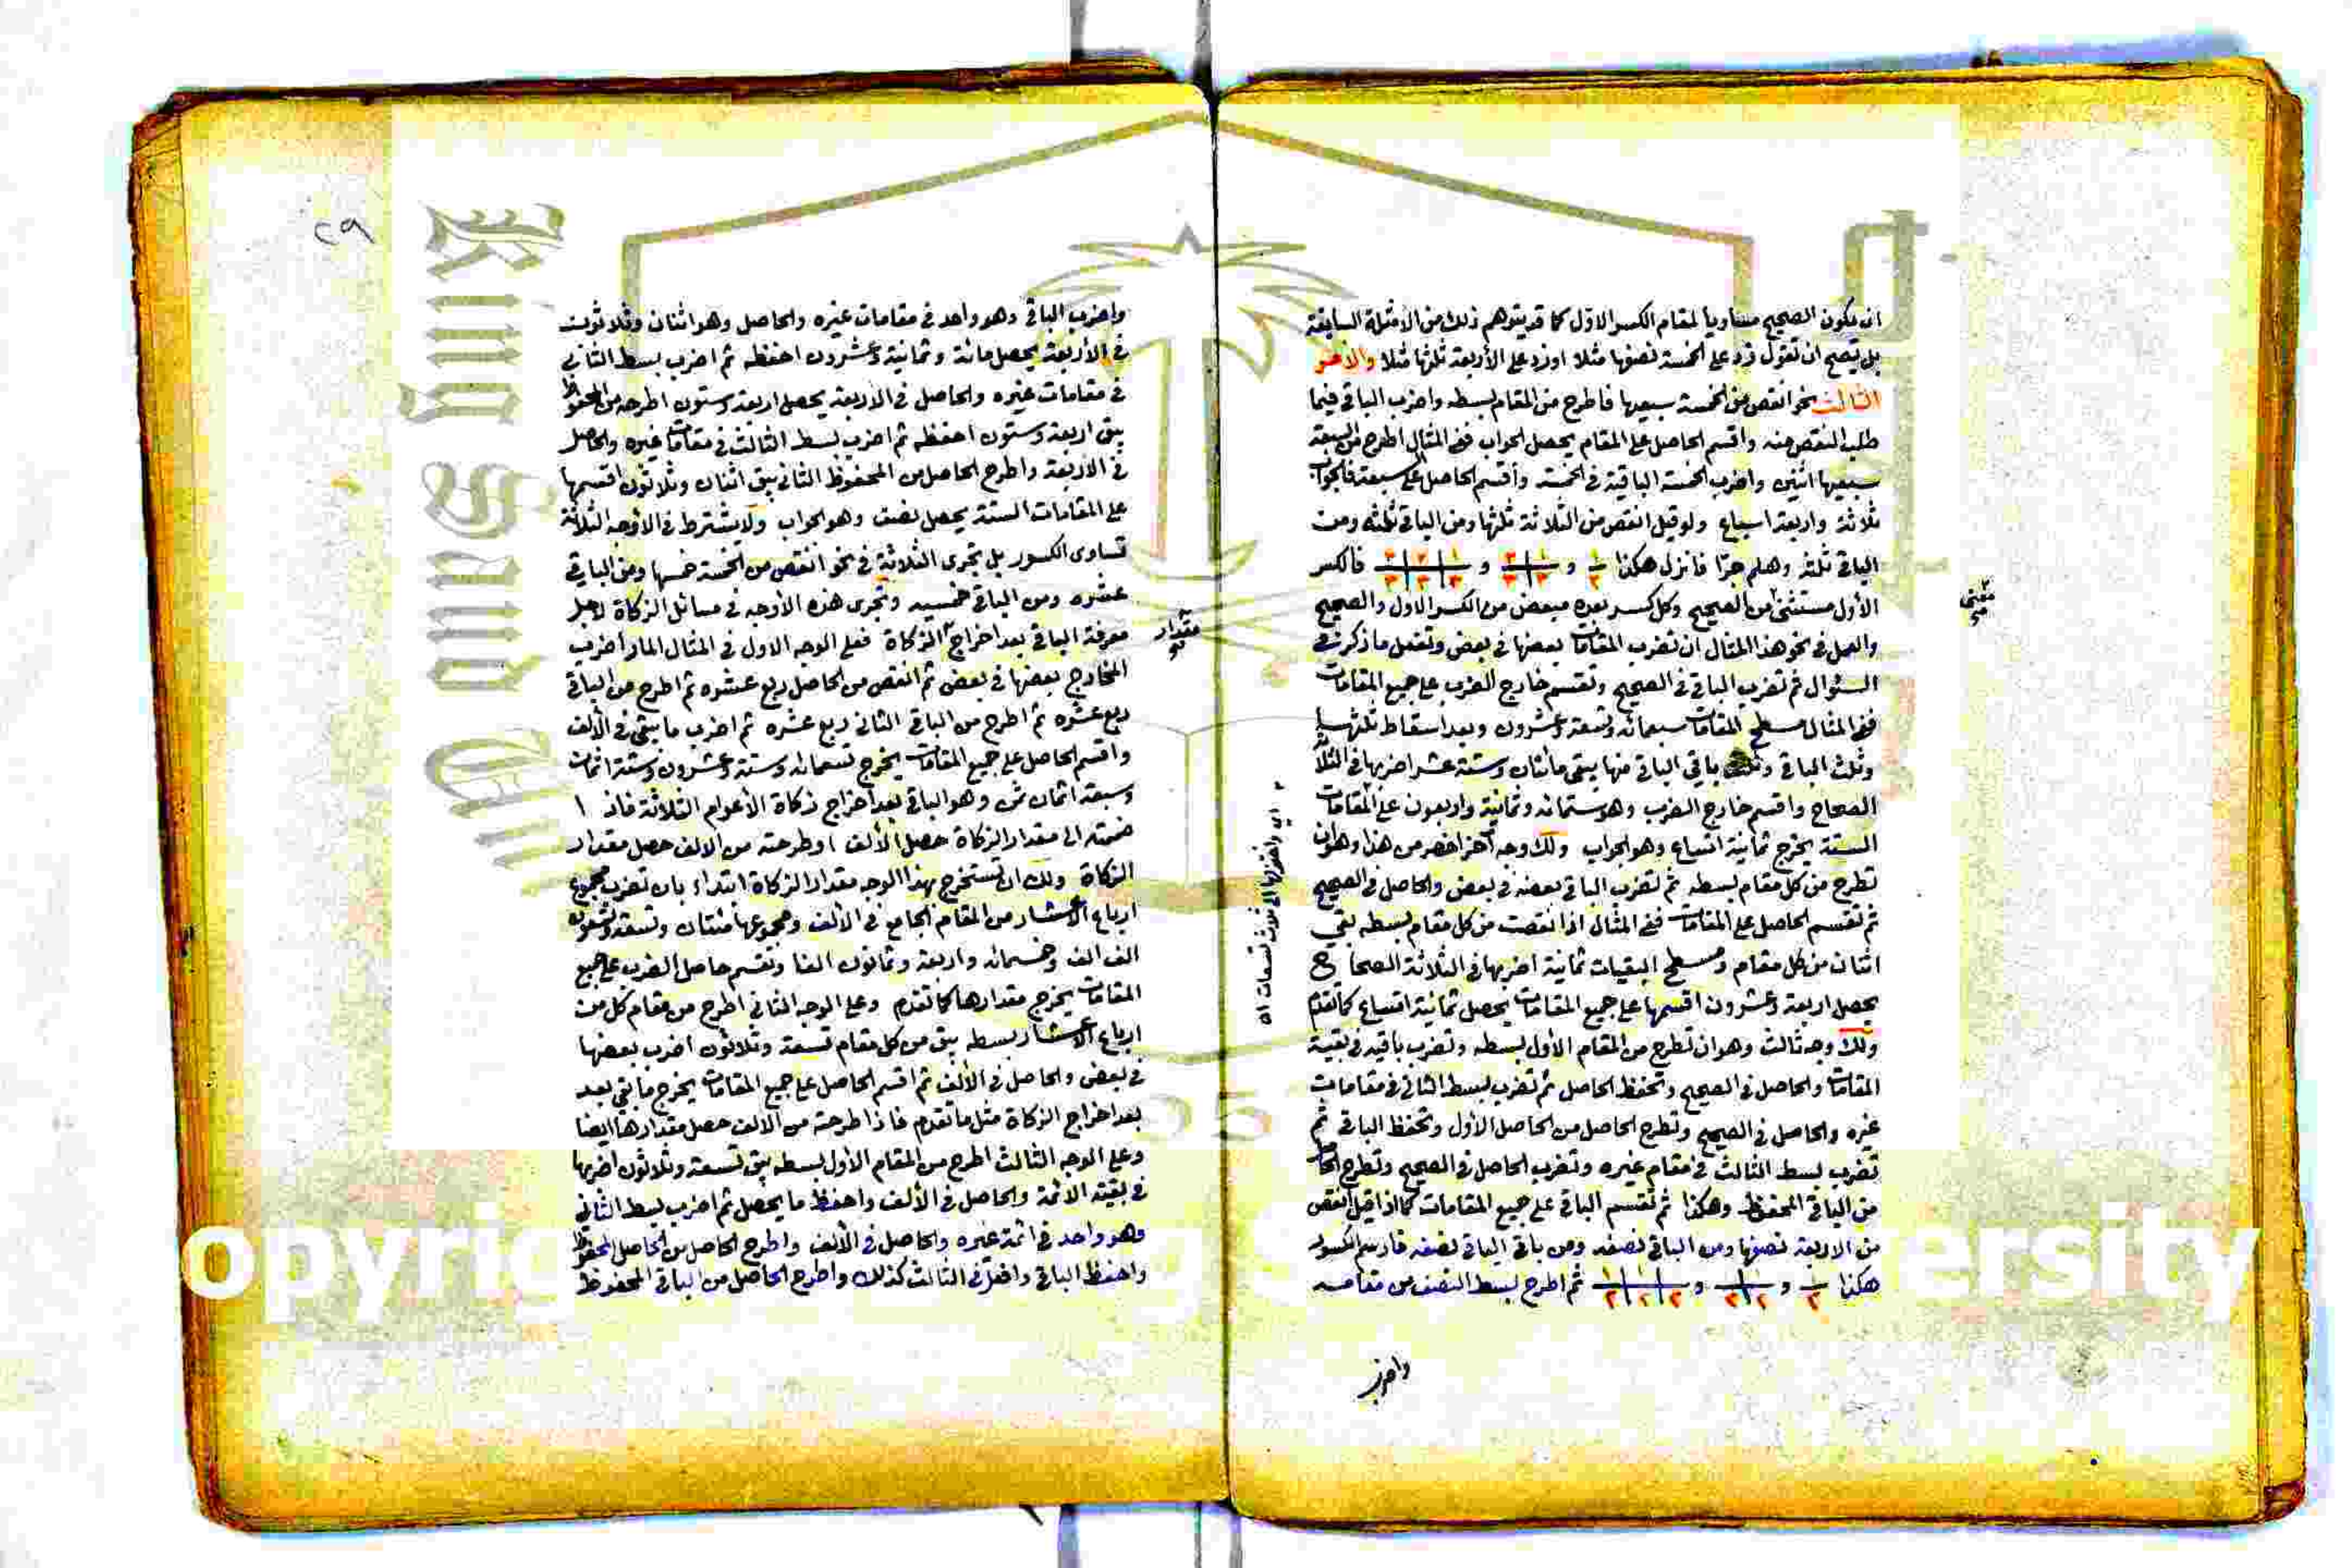 ان يكون الصحيح مساويا لمقام الكسر الاول كما قد يتوهم ذلك من الامثلة السابقة
بل يصح ان تقول زد على الخمسة نصفها مثلا او زد على الأربعة ثلثها مثلا والامر
الثالث نحو انقص من الخمسة سبعيها فاطرح من المقام بسطه واضرب الباقي فيما
طلب النقص منه واقسم الحاصل على المقام يحصل الجواب ففي المثال اطرح من السبعة
سبعيها اثنين واضرب الخمسة الباقية في الخمسة وأقسم الحاصل على سبعة فالجواب
ثلاثة واربعة اسباع ولو قيل انقص من الثلاثة ثلثها ومن الباقي ثلثه ومن
الباقي ثلثه وهلم جرّا فانزل هكذا و و فالكسر
الأول مستثنى من الصحيح وكل كسر بعده مبعض من الكسر الاول والصحيح
والعمل في نحو هذا المثال ان تضرب المقامات بعضها في بعض وتفعل ما ذكر في
السؤال ثم تضرب الباقي في الصحيح وتقسم خارج الضرب على جميع المقامات
ففي المثال مسطح المقامات سبعمائة وتسعة وعشرون وبعد اسقاط ثلثها
وثلث الباقي وثلث باقي الباقي منها يبقى مائتان وستة عشر اضربها في الثلاثة
الصحاح واقسم خارج الضرب وهو ستمائة وثمانية واربعون على المقامات
الستة يخرج ثمانية اتساع وهو الجواب ولك وجه آخر اخصر من هذا وهو ان
تطرح من كل مقام بسطه ثم تضرب الباقي بعضه في بعض والحاصل في الصحيح
ثم تقسم الحاصل على المقامات ففي المثال اذا نقصت من كل مقام بسطه بقي
اثنان من كل مقام ومسطح البقيات ثمانية اضربها في الثلاثة الصحاح
يحصل اربعة وعشرون اقسمها على جميع المقامات يحصل ثمانية اتساع كما تقدم
ولك وجه ثالث وهو ان تطرح من المقام الأول بسطه وتضرب باقيه في بقية
المقامات والحاصل في الصحيح وتحفظ الحاصل ثم تضرب بسط الثاني في مقامات
غيره والحاصل في الصحيح وتطرح الحاصل من الحاصل الأول وتحفظ الباقي ثم
تضرب بسط الثالث في مقام غيره وتضرب الحاصل في الصحيح وتطرح الحاصل
من الباقي المحفوظ وهكذا ثم تقسم الباقي على جميع المقامات كما اذا قيل انقص
من الاربعة نصفها ومن الباقي نصفه ومن باقي الباقي نصفه فارسم الكسور
هكذا و و ثم اطرح بسط النصف من مقامه
واضرب
٢٩
واضرب الباقي وهو واحد في مقامات غيره والحاصل وهو اثنان وثلاثون
في الأربعة يحصل مائة وثمانية وعشرون احفظه ثم اضرب بسط الثاني
في مقامات غيره والحاصل في الاربعة يحصل اربعة وستون اطرحه من المحفوظ
يبقى اربعة وستون احفظه ثم اضرب بسط الثالث في مقامات غيره والحاصل
في الاربعة واطرح الحاصل من المحفوظ الثاني يبقى اثنان وثلاثون اقسمها
على المقامات الستة يحصل نصف وهو الجواب ولا يشترط في الأوجه الثلاثة
تساوى الكسور بل تجرى الثلاثة في نحو انقص من الخمسة خمسها ومن الباقي
عشره ومن الباقي خمسيه وتجرى هذه الأوجه في مسائل الزكاة لاجل
معرفة الباقي بعد اخراج الزكاة فعلى الوجه الاول في المثال المار اضرب
مقدار
المخارج بعضها في بعض ثم انقص من الحاصل ربع عشره ثم اطرح من الباقي
ربع عشره ثم اطرح من الباقي الثاني ربع عشره ثم اضرب ما يبقى في الألف
واقسم الحاصل على جميع المقامات يخرج تسعمائة وستة وعشرون وستة اثمان
وسبعة اثمان ثمن وهو الباقي بعد اخراج زكاة الأعوام الثلاثة فاذا
ضممته الى مقدار الزكاة حصل الألف او طرحته من الالف حصل مقدار
الزكاة ولك ان تستخرج بهذا الوجه مقدار الزكاة ابتداء بان تضرب مجموع
ارباع الاعشار من المقام الجامع في الألف ومجموعها
الف الف وخمسمائة واربعة وثمانون الفا وتقسم حاصل الضرب على جميع
المقامات يخرج مقدارها كما تقدم وعلى الوجه الثاني اطرح من مقام كل من
ارباع الاعشار بسطه يبقى من كل مقام تسعة وثلاثون اضرب بعضها
في بعض والحاصل في الألف ثم اقسم الحاصل على جميع المقامات يخرج ما بقى بعد
بعد اخراج الزكاة مثل ما تقدم فاذا طرحته من الالف حصل مقدارها ايضا
وعلى الوجه الثالث اطرح من المقام الأول بسطه يبقى تسعة وثلاثون اضربها
في بقية الائمة والحاصل في الألف واحفظ ما يحصل ثم اضرب بسط الثاني
وهو واحد في ائمة غيره والحاصل في الألف واطرح الحاصل من الحاصل المحفوظ
واحفظ الباقي وافعل في الثالث كذلك واطرح الحاصل من الباقي المحفوظ